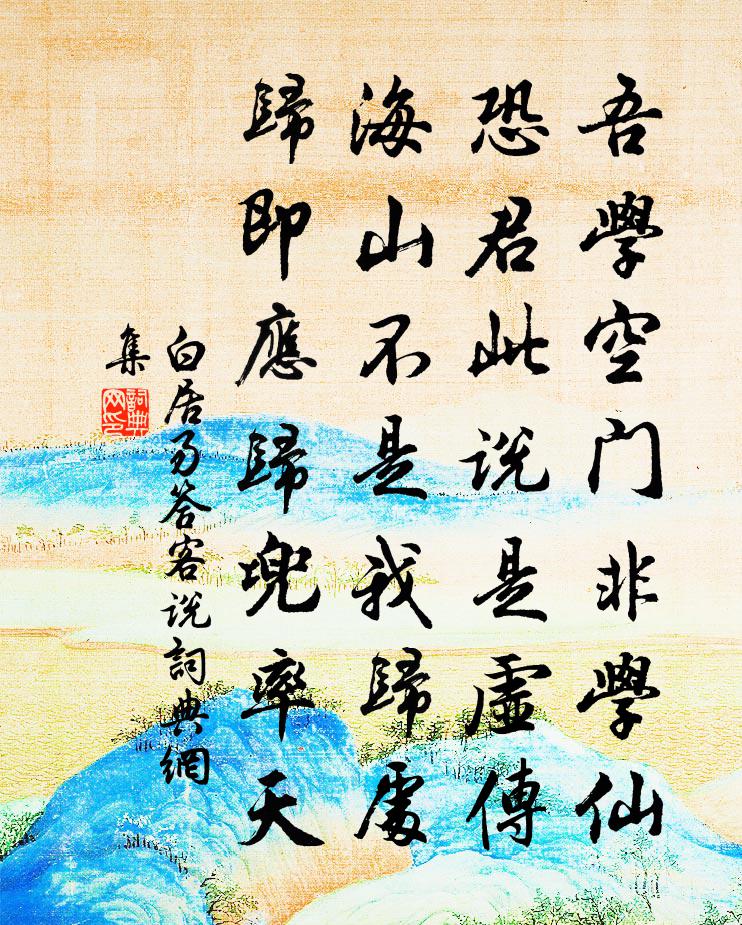 吾學空門非學仙
恐君此説是虛傳
海山不是我歸處
歸即應歸兜率天
白居易答客説詞典網
集
詞典
网印